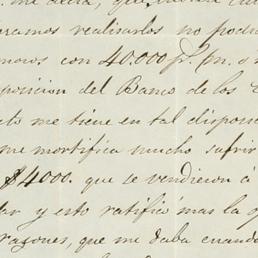 me decia, que
ramos realisarlos no podri
mos con 40.000 p.
posicion del Banco de los
to me tiene en tal disposi
me mortifica mucho sufrir
$4000. que se vendieron á
ar y esto ratifico mas la
razones, que me daba cuando